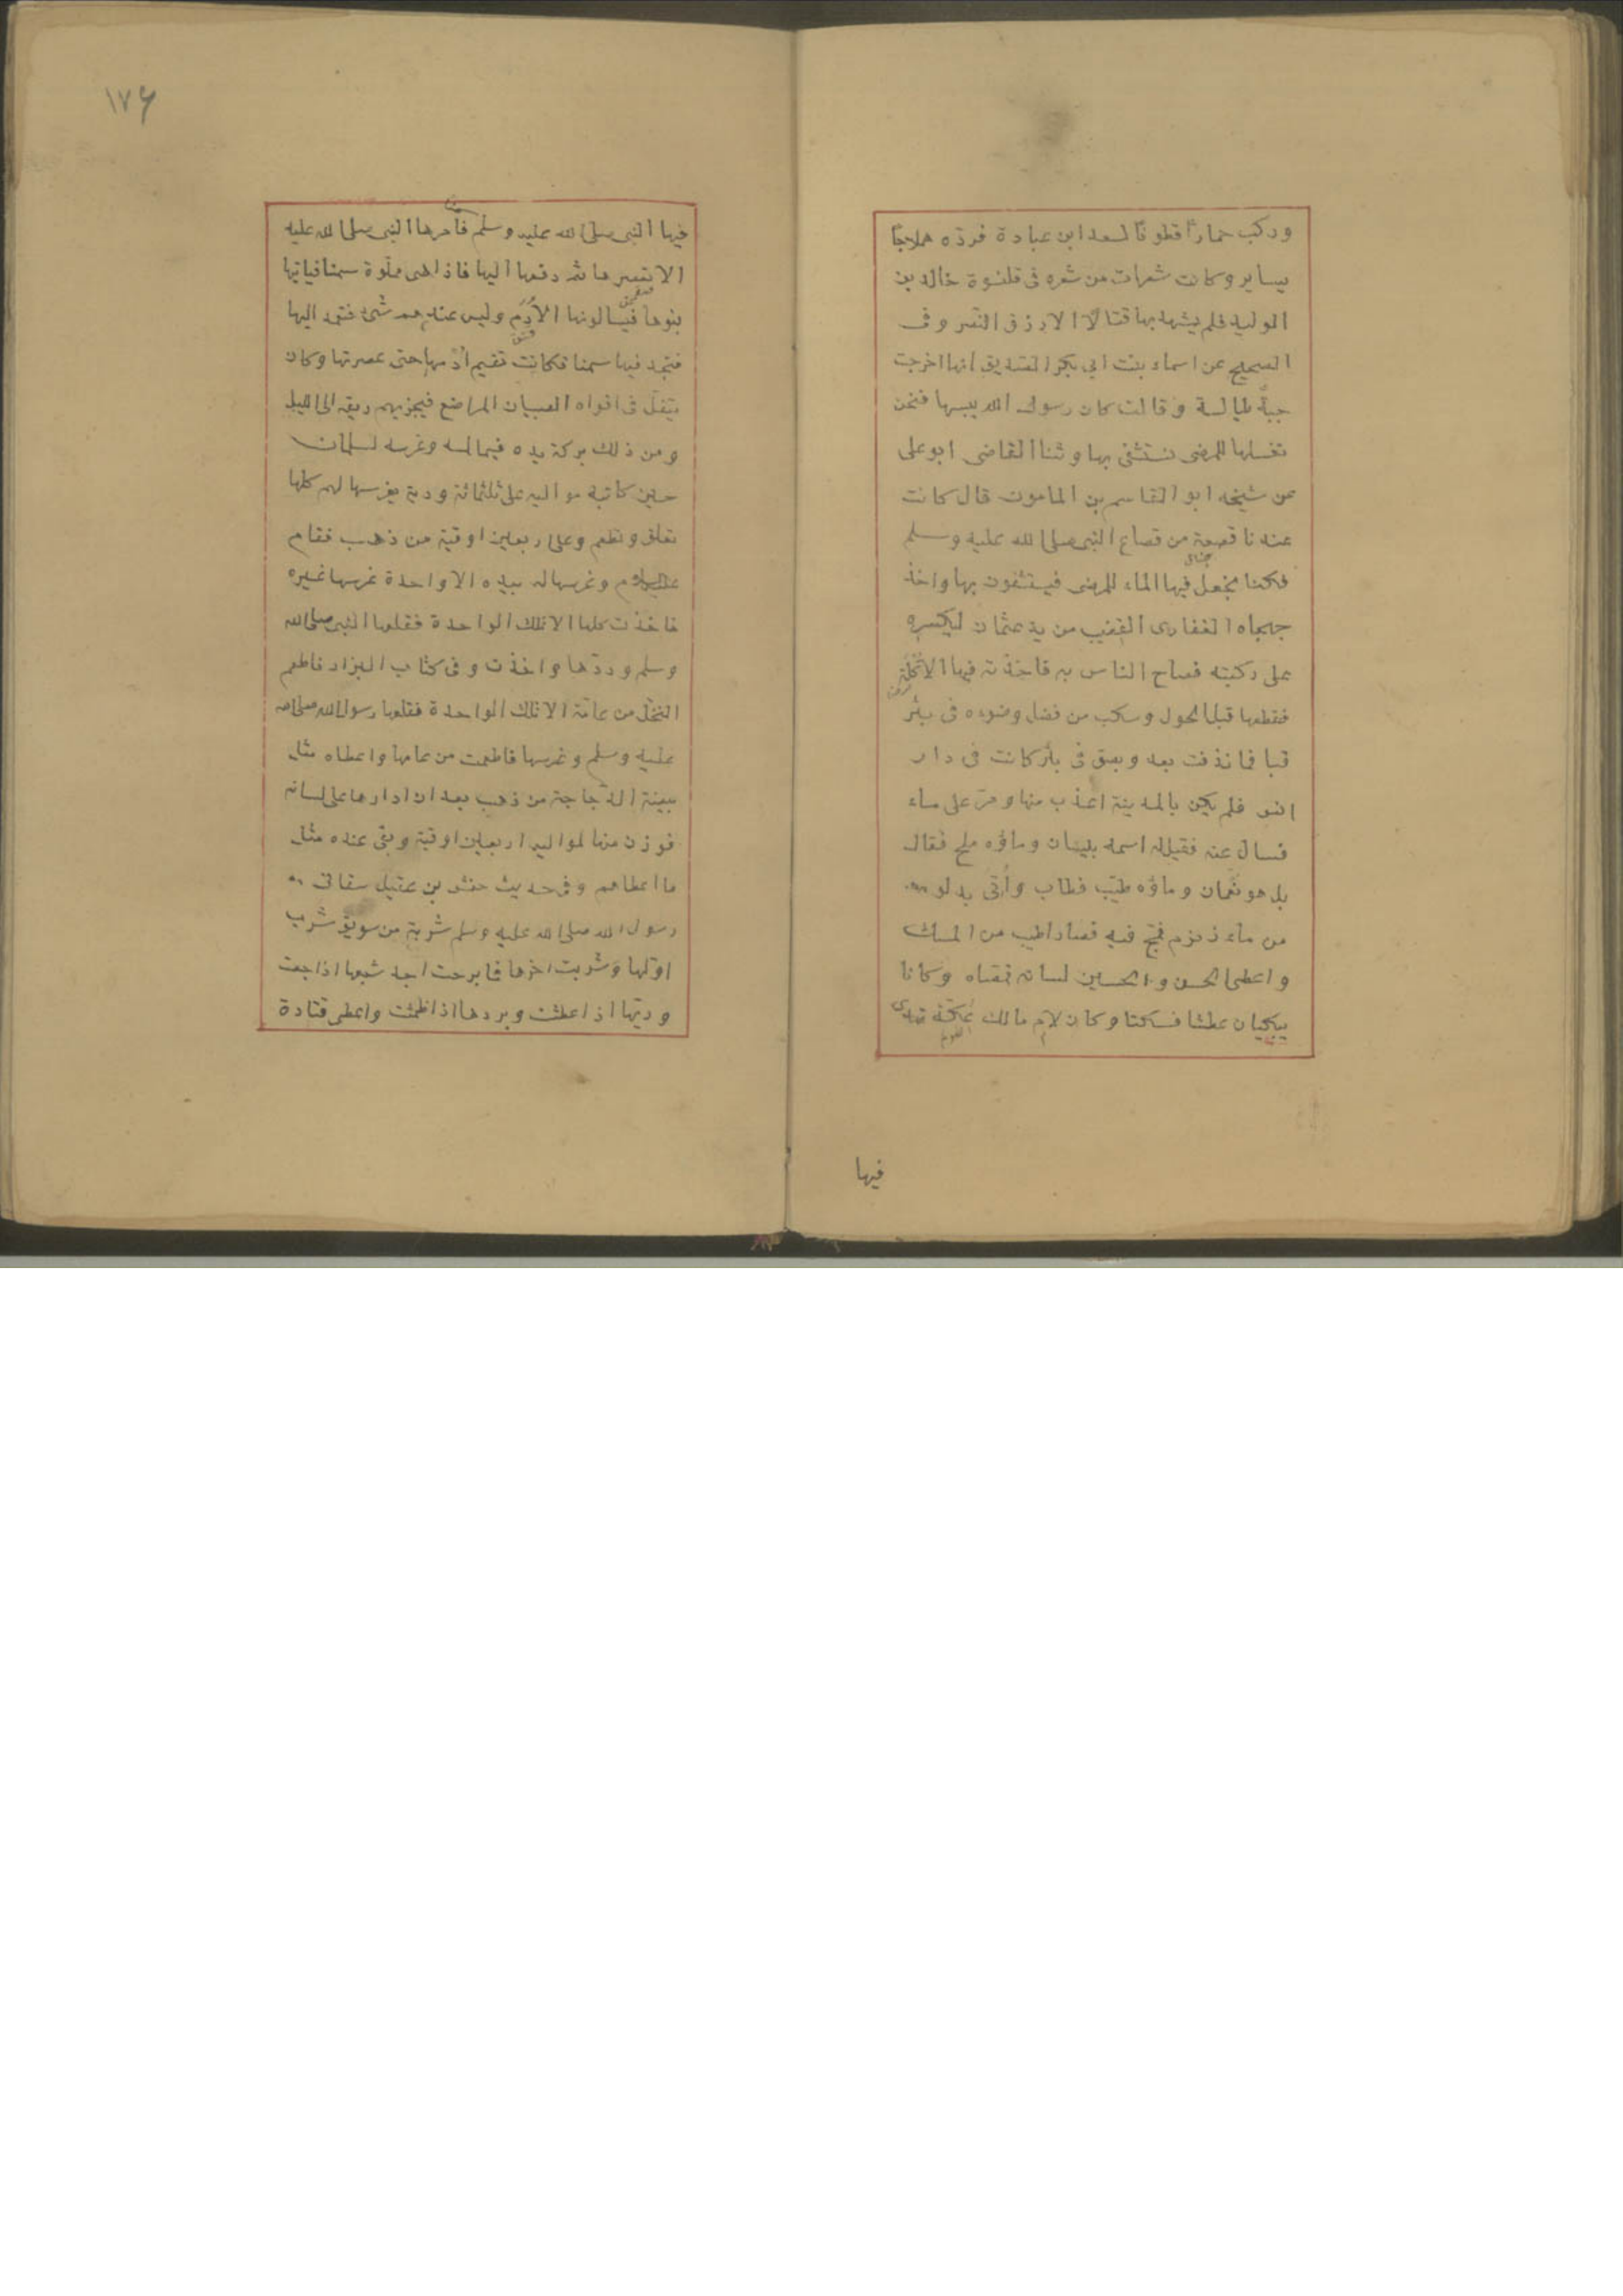 وركب حمارا قطوفا لسعد ابن عبادة فرده هملاجا
يساير وكانت شعرات من شعره فى قلنسوة خالد بن
الوليد فلم يشهد بها قتالا الا رزق النصر وفى
الصحيح عن اسماء بنت ابى بكر الصديق انها اخرجت
جبة طيالسة وقالت كان رسول الله يلبسها فنحن
نغسلها للمرضى نستشفى بها وثنا القاضى ابو على
عن شيخه ابو القاسم بن المامون قال كانت
عندنا قصعة من قصاع النبى صلى الله عليه وسلم
فكنا نجعل فيها الماء للمرضى فيستشفون بها واخذ
جهجاه الغفارى القضيب من يد عثمان ليكسره
على ركبته فصاح الناس به فاخذته فيها الاكلة
فقطعها قبل الحول وسكب من فضل وضوءه فى بئر
قبا فما نزفت بعد وبصق فى بئر كانت فى دار
انس فلم يكن بالمدينة اعذب منها ومر على ماء
فسال عنه فقيل له اسمه بيسان وماؤه ملح فقال
بل هو نعمان وماؤه طيب فطاب وأتى بدلو
من ماء زمزم فمج فيه فصار اطيب من المسك
واعطى الحسن والحسين لسانه فمصاه وكانا
يبكيان عطشا فسكتا وكان لام مالك عكة تهدى
فيها
١٧٤
فيها النبى صلى الله عليه وسلم فامرها النبى صلى الله عليه
الا تعصرها ثم دفعها اليها فاذا هى مملوة سمنا فياتيها
بنوها فيسالونها الأدم وليس عندهم شئ فتعمد اليها
فتجد فيها سمنا فكانت تقيم أدمها حتى عصرتها وكان
يتفل فى افواه الصبيان المراضع فيجزيهم ريقه الى الليل
ومن ذلك بركة يده فيما لمسه وغرسه لسلمان
حين كاتبه مواليه على ثلثمائة ودية يغرسها لهم كلها
تعلق وتطعم وعلى اربعين اوقية من ذهب فقام
عليه السلام وغرسها له بيده الا واحدة غرسها غيره
فاخذت كلها الا تلك الواحدة فقلعها النبى صلى الله
وسلم وردها واخذت وفى كتاب البزار فاطعم
النخل من عامه الا تلك الواحدة فقلعها رسول الله صلى الله
عليه وسلم وغرسها فاطعمت من عامها واعطاه مثل
بيضة الدجاجة من ذهب بعد ان ادارها على لسانه
فوزن منها لمواليه اربعين اوقية وبقى عنده مثل
ما اعطاهم وفى حديث حنش بن عقيل سقانى
رسول الله صلى الله عليه وسلم شربة من سويق شرب
اولها وشربت اخرها فما برحت اجد شبعها اذا جعت
وريها اذا عطشت وبردها اذا ظمئت واعطى قتادة